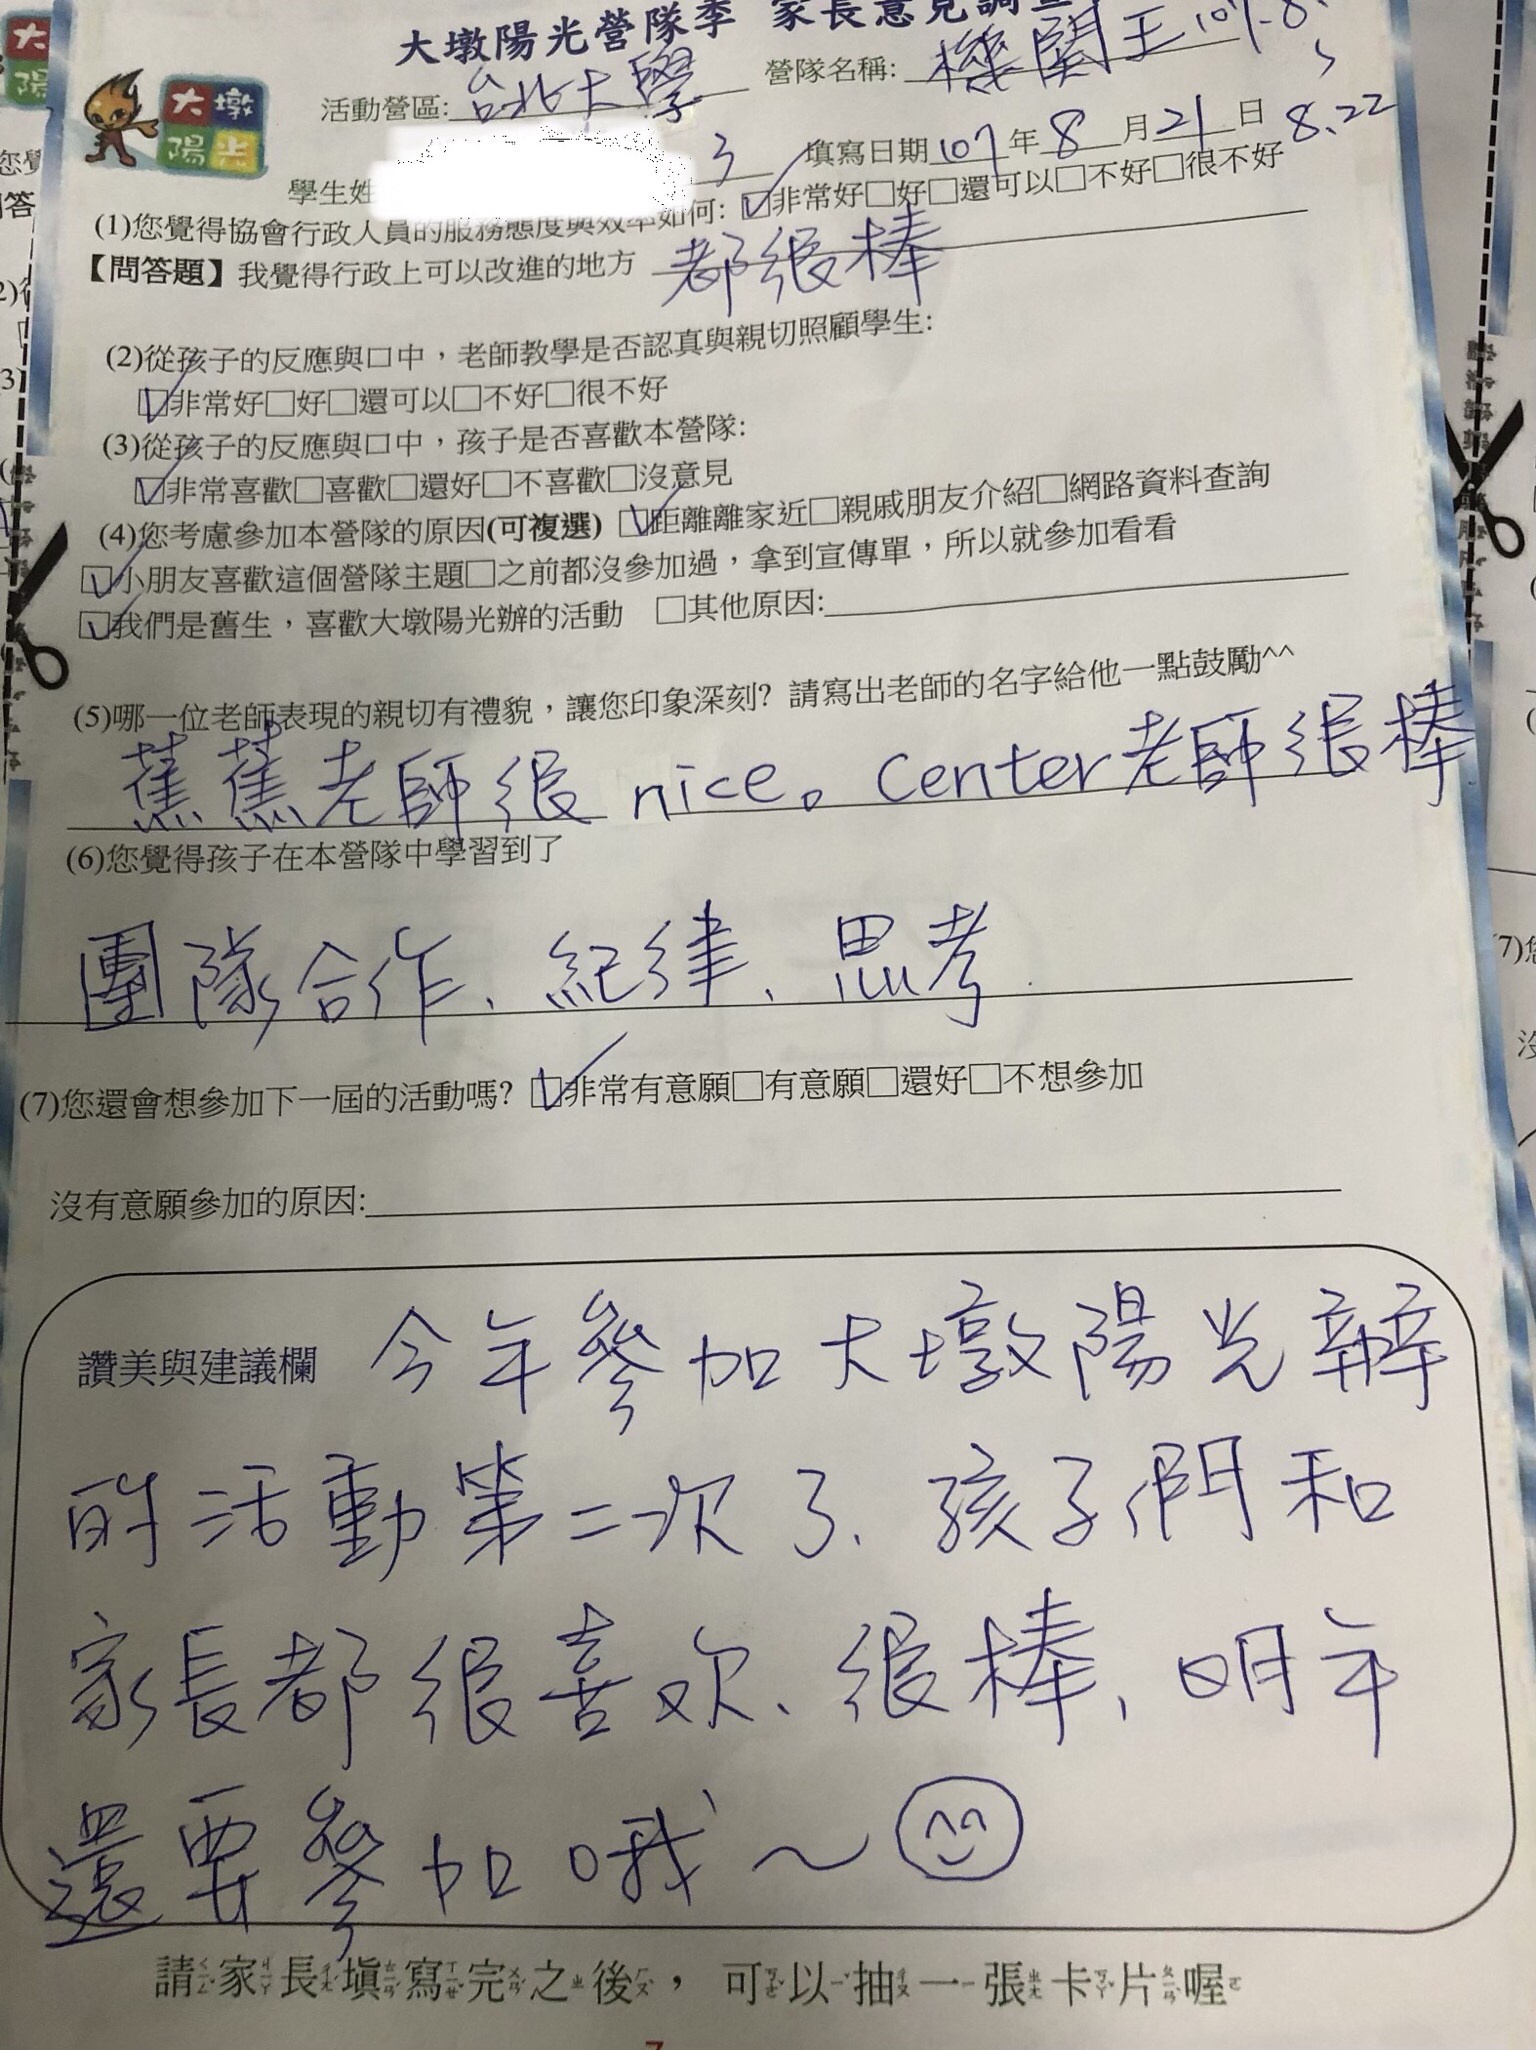 大墩陽光營隊季 家長意見調查
大墩
陽光
活動營區: 台北大學 營隊名稱: 機關王 107.8.
學生姓 3 填寫日期 107 年 8 月 21 日 8.22
(1)您覺得協會行政人員的服務態度與效率如何: ☑非常好□好□還可以□不好□很不好
【問答題】我覺得行政上可以改進的地方 都很棒
(2)從孩子的反應與口中，老師教學是否認真與親切照顧學生:
☑非常好□好□還可以□不好□很不好
(3)從孩子的反應與口中，孩子是否喜歡本營隊:
☑非常喜歡□喜歡□還好□不喜歡□沒意見
(4)您考慮參加本營隊的原因(可複選) ☑距離離家近□親戚朋友介紹□網路資料查詢
☑小朋友喜歡這個營隊主題□之前都沒參加過，拿到宣傳單，所以就參加看看
☑我們是舊生，喜歡大墩陽光辦的活動 □其他原因:
(5)哪一位老師表現的親切有禮貌，讓您印象深刻? 請寫出老師的名字給他一點鼓勵^^
蕉蕉老師很nice。Center老師很棒
(6)您覺得孩子在本營隊中學習到了
團隊合作、紀律、思考.
(7)您還會想參加下一屆的活動嗎? ☑非常有意願□有意願□還好□不想參加
沒有意願參加的原因:
讚美與建議欄 今年參加大墩陽光辦
的活動第二次了、孩子們和
家長都很喜欢、很棒、明年
還要參加哦～
請家長填寫完之後，可以抽一張卡片喔